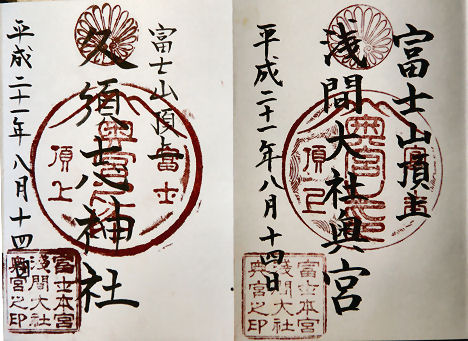 富士山頂上
浅間大社奥宮
平成二十一年八月十四日
富士
頂上
富士本宮
浅間大社
奥宮之印
富士山頂上
久須志神社
平成二十一年八月十四日
富士
頂上
富士本宮
浅間大社
奥宮之印